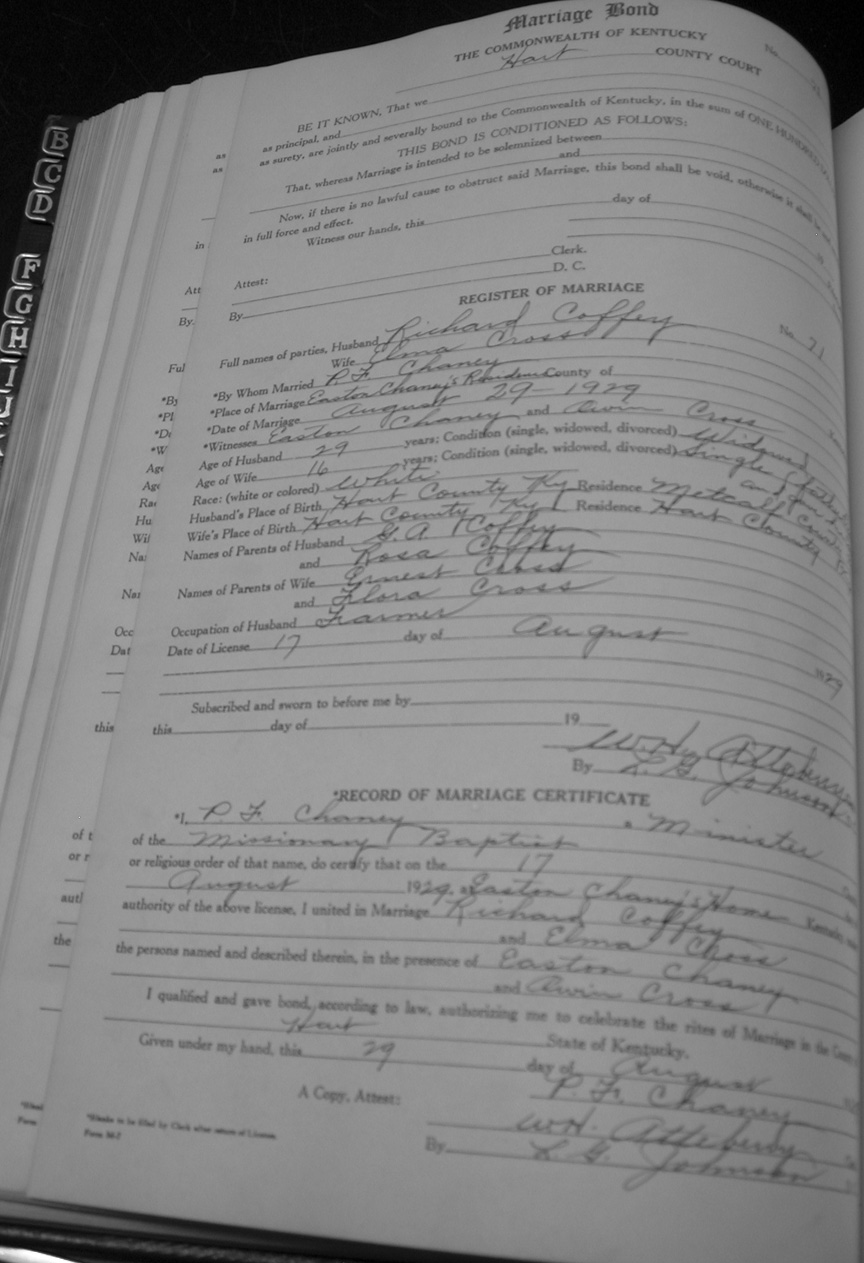 Marriage Bond
THE COMMONWEALTH OF KENTUCKY
No.
Hart COUNTY COURT
BE IT KNOWN, That we
as principal, and
as surety, are jointly and severally bound to the Commonwealth of Kentucky, in the sum of ONE HUNDRED
THIS BOND IS CONDITIONED AS FOLLOWS:
That, whereas Marriage is intended to be solemnized between
and
Now, if there is no lawful cause to obstruct said Marriage, this bond shall be void, otherwise it shall
in full force and effect.
Witness our hands, this day of
Clerk.
Attest:
D. C.
By
REGISTER OF MARRIAGE
No. 71
Full names of parties, Husband Richard Coffey
Wife Elma Cross
*By Whom Married P. F. Chaney
*Place of Marriage Easton Chaney's Residence County of
*Date of Marriage August 29 - 1929
*Witnesses Easton Chaney and Arvin Cross
Age of Husband 29 years; Condition (single, widowed, divorced) Widowed
Age of Wife 16 years; Condition (single, widowed, divorced) Single
Race: (white or colored) White
Husband's Place of Birth Hart County Ky Residence Metcalf County
Wife's Place of Birth Hart County Ky Residence Hart County
Names of Parents of Husband G. A. Coffey
and Rosa Coffey
Names of Parents of Wife Ernest Cross
and Flora Cross
Occupation of Husband Farmer
Date of License 17 day of August 1929
Subscribed and sworn to before me by
this day of 19
W. H. Attebery
By L. G. Johnson
*RECORD OF MARRIAGE CERTIFICATE
*I, P. F. Chaney a Minister
of the Missionary Baptist
or religious order of that name, do certify that on the 17
August 1929, Easton Chaney's Home Kentucky
authority of the above license, I united in Marriage Richard Coffey
and Elma Cross
the persons named and described therein, in the presence of Easton Chaney
and Arvin Cross
I qualified and gave bond, according to law, authorizing me to celebrate the rites of Marriage in the County
Hart State of Kentucky.
Given under my hand, this 29 day of August
P. F. Chaney
A Copy, Attest:
W. H. Attebery
By L. G. Johnson
*Blanks to be filled by Clerk after return of License.
B
C
D
F
G
H
I
J